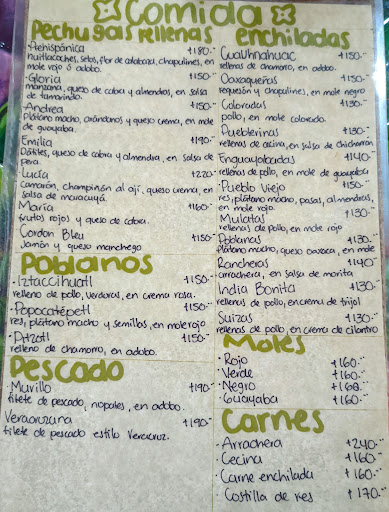 Comida
Pechugas rellenas
·Prehispánica +180.-
huitlacoches, setas, flor de calabaza, chapulines, en
mole rojo ó adobo.
·Gloria +150.-
manzana, queso de cabra y almendras, en salsa
de tamarindo.
·Andrea +150.-
Plátano macho, arándanos y queso crema, en mole
de guayaba.
Emilia +190.-
Dátiles, queso de cabra y almendra, en salsa de
pera.
Lucía +220.-
Camarón, champiñón al ají, queso crema, en
salsa de maracuyá.
María +160.-
frutos rojos y queso de cabra.
Cordon Bleu +150.-
Jamón y queso manchego
Poblanos
·Iztaccíhuatl +150.-
relleno de pollo, verduras, en crema rosa.
·Popocatépetl +150.-
res, plátano macho y semillas, en mole rojo
·Pitzotl +150.-
relleno de chamorro, en adobo.
Pescado
·Murillo +190.-
filete de pescado, nopales, en adobo.
Veracruzana +190.-
filete de pescado estilo Veracruz.
enchiladas
Cuauhnahuac +150.-
rellenas de chamorro, en adobo.
Oaxaqueñas +150.-
requesón y chapulines, en mole negro
Coloradas +130.-
pollo, en mole colorado.
Pueblerinas +130.-
rellenas de cecina, en salsa de chicharrón
Enguayabadas +140.-
rellenas de pollo, en mole de guayaba
·Pueblo Viejo +150.-
res, plátano macho, pasas, almendras,
en mole rojo.
Mulatas +130.-
rellenas de pollo, en mole rojo
Poblanas +130.-
plátano macho, queso oaxaca, en mole
Rancheras +140.-
arrachera, en salsa de morita
India Bonita +130.-
rellenas de pollo, en crema de frijol
Suizas +130.-
rellenas de pollo, en crema de cilantro
Moles
·Rojo +160.-
·Verde +160.-
·Negro +160.-
·Guayaba +160.-
Carnes
·Arrachera +240.-
·Cecina +160.-
·Carne enchilada +160.-
·Costilla de res +170.-